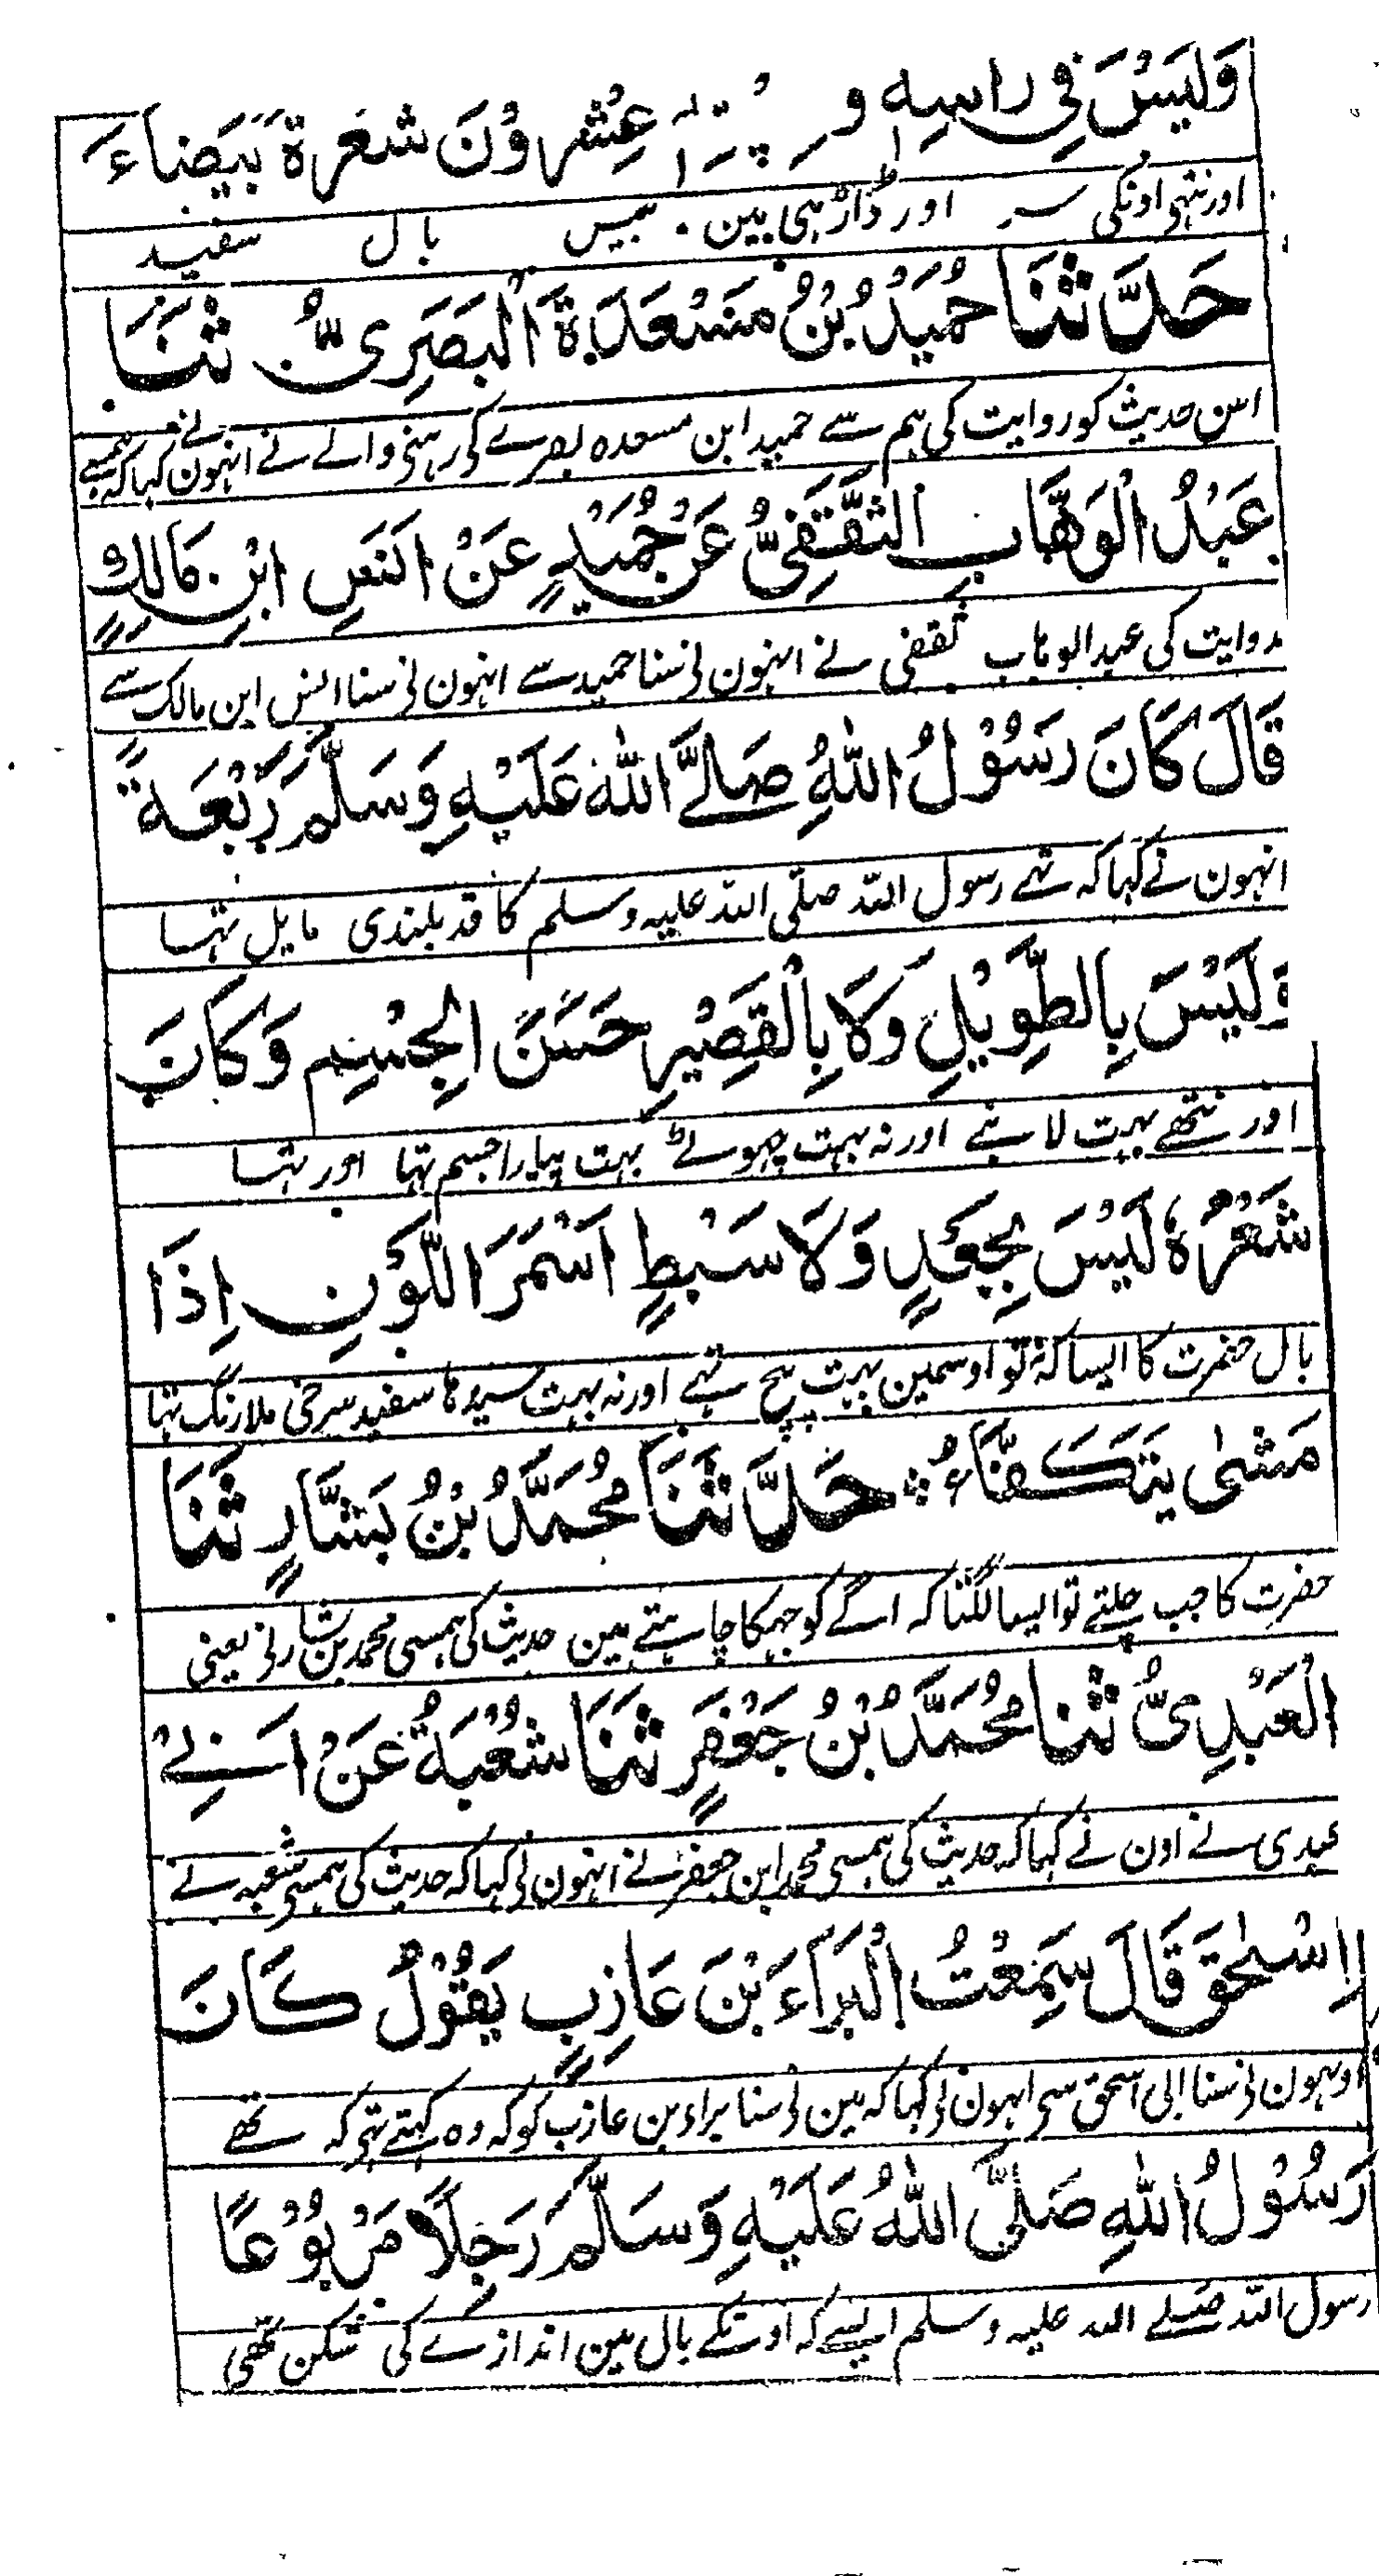 وَلَيْسَ فِي رَاسِهِ و عِشْرُوْنَ شَعْرَةً بَيَضَاءَ
اور نتہی اونکی سر اور ڈاڑہی مین بیس بال سفید
حَدَّثَنَا حُمَيْدُ بْنُ مَسْعَدَةَ الْبَصَرِيُّ ثَنَا
اس حدیث کو روایت کی ہم سے حمید ابن مسعدہ بصرے کی رہنی والے نے انہون نے کہا کہ ہمسے
عَبْدُ الْوَهَّابِ الثَّقَفِيُّ عَنْ حُمَيْدٍ عَنْ اَنَسِ ابْنِ مَالِكٍ
روایت کی عبد الوہاب ثقفی نے انہون نی سنا حمید سے انہون نی سنا انس ابن مالک سے
قَالَ كَانَ رَسُوْلُ اللهِ صَلَّے اللهُ عَلَيْهِ وَسَلَّمَ رَبْعَةً
انہون نے کہا کہ تہے رسول اللہ صلّی اللہ علیہ وسلم کا قد بلندی مایل تہا
وَلَيْسَ بِالطَّوِيْلِ وَلَا بِالْقَصِيْرِ حَسَنَ الْجِسْمِ وَكَانَ
اور نتھے بہت لانبے اور نہ بہت چہوٹے بہت پیارا جسم تہا اور تہا
شَعْرُهٗ لَيْسَ بِجَعْدٍ وَلَا سَبْطٍ اَسْمَرَ اللَّوْنِ اِذَا
بال حضرت کا ایسا کہ نہ تو اوسمین بہت پیچ تہے اور نہ بہت سیدہا سفید سرخی ملا رنگ تہا
مَشٰى يَتَكَفَّاءُ حَدَّثَنَا مُحَمَّدُ بْنُ بَشَّارٍ ثَنَا
حضرت کا جب چلتے تو ایسا لگتا کہ اگے کو جہکا چاہتے ہین حدیث کی ہمسی محمد بن بشار نی یعنی
الْعَبْدِيُّ ثَنَا مُحَمَّدُ بْنُ جَعْفَرٍ ثَنَا شُعْبَةُ عَنْ اَبِيْ
عبدی نے اون نے کہا کہ حدیث کی ہمسی محمد ابن جعفر نے انہون نی کہا کہ حدیث کی ہمسی شعبہ نے
اِسْحٰقَ قَالَ سَمِعْتُ الْبَرَاءَ بْنَ عَازِبٍ يَقُوْلُ كَانَ
اونہون نی سنا ابی اسحق سی انہون نی کہا کہ مین نی سنا براء بن عازب کو کہ وہ کہتے تہی کہ تھے
رَسُوْلُ اللهِ صَلَّى اللهُ عَلَيْهِ وَسَلَّمَ رَجِلًا مَرْبُوْعًا
رسول اللہ صلے اللہ علیہ وسلم ایسے کہ اونکے بال مین اندازے کی شکن تھی